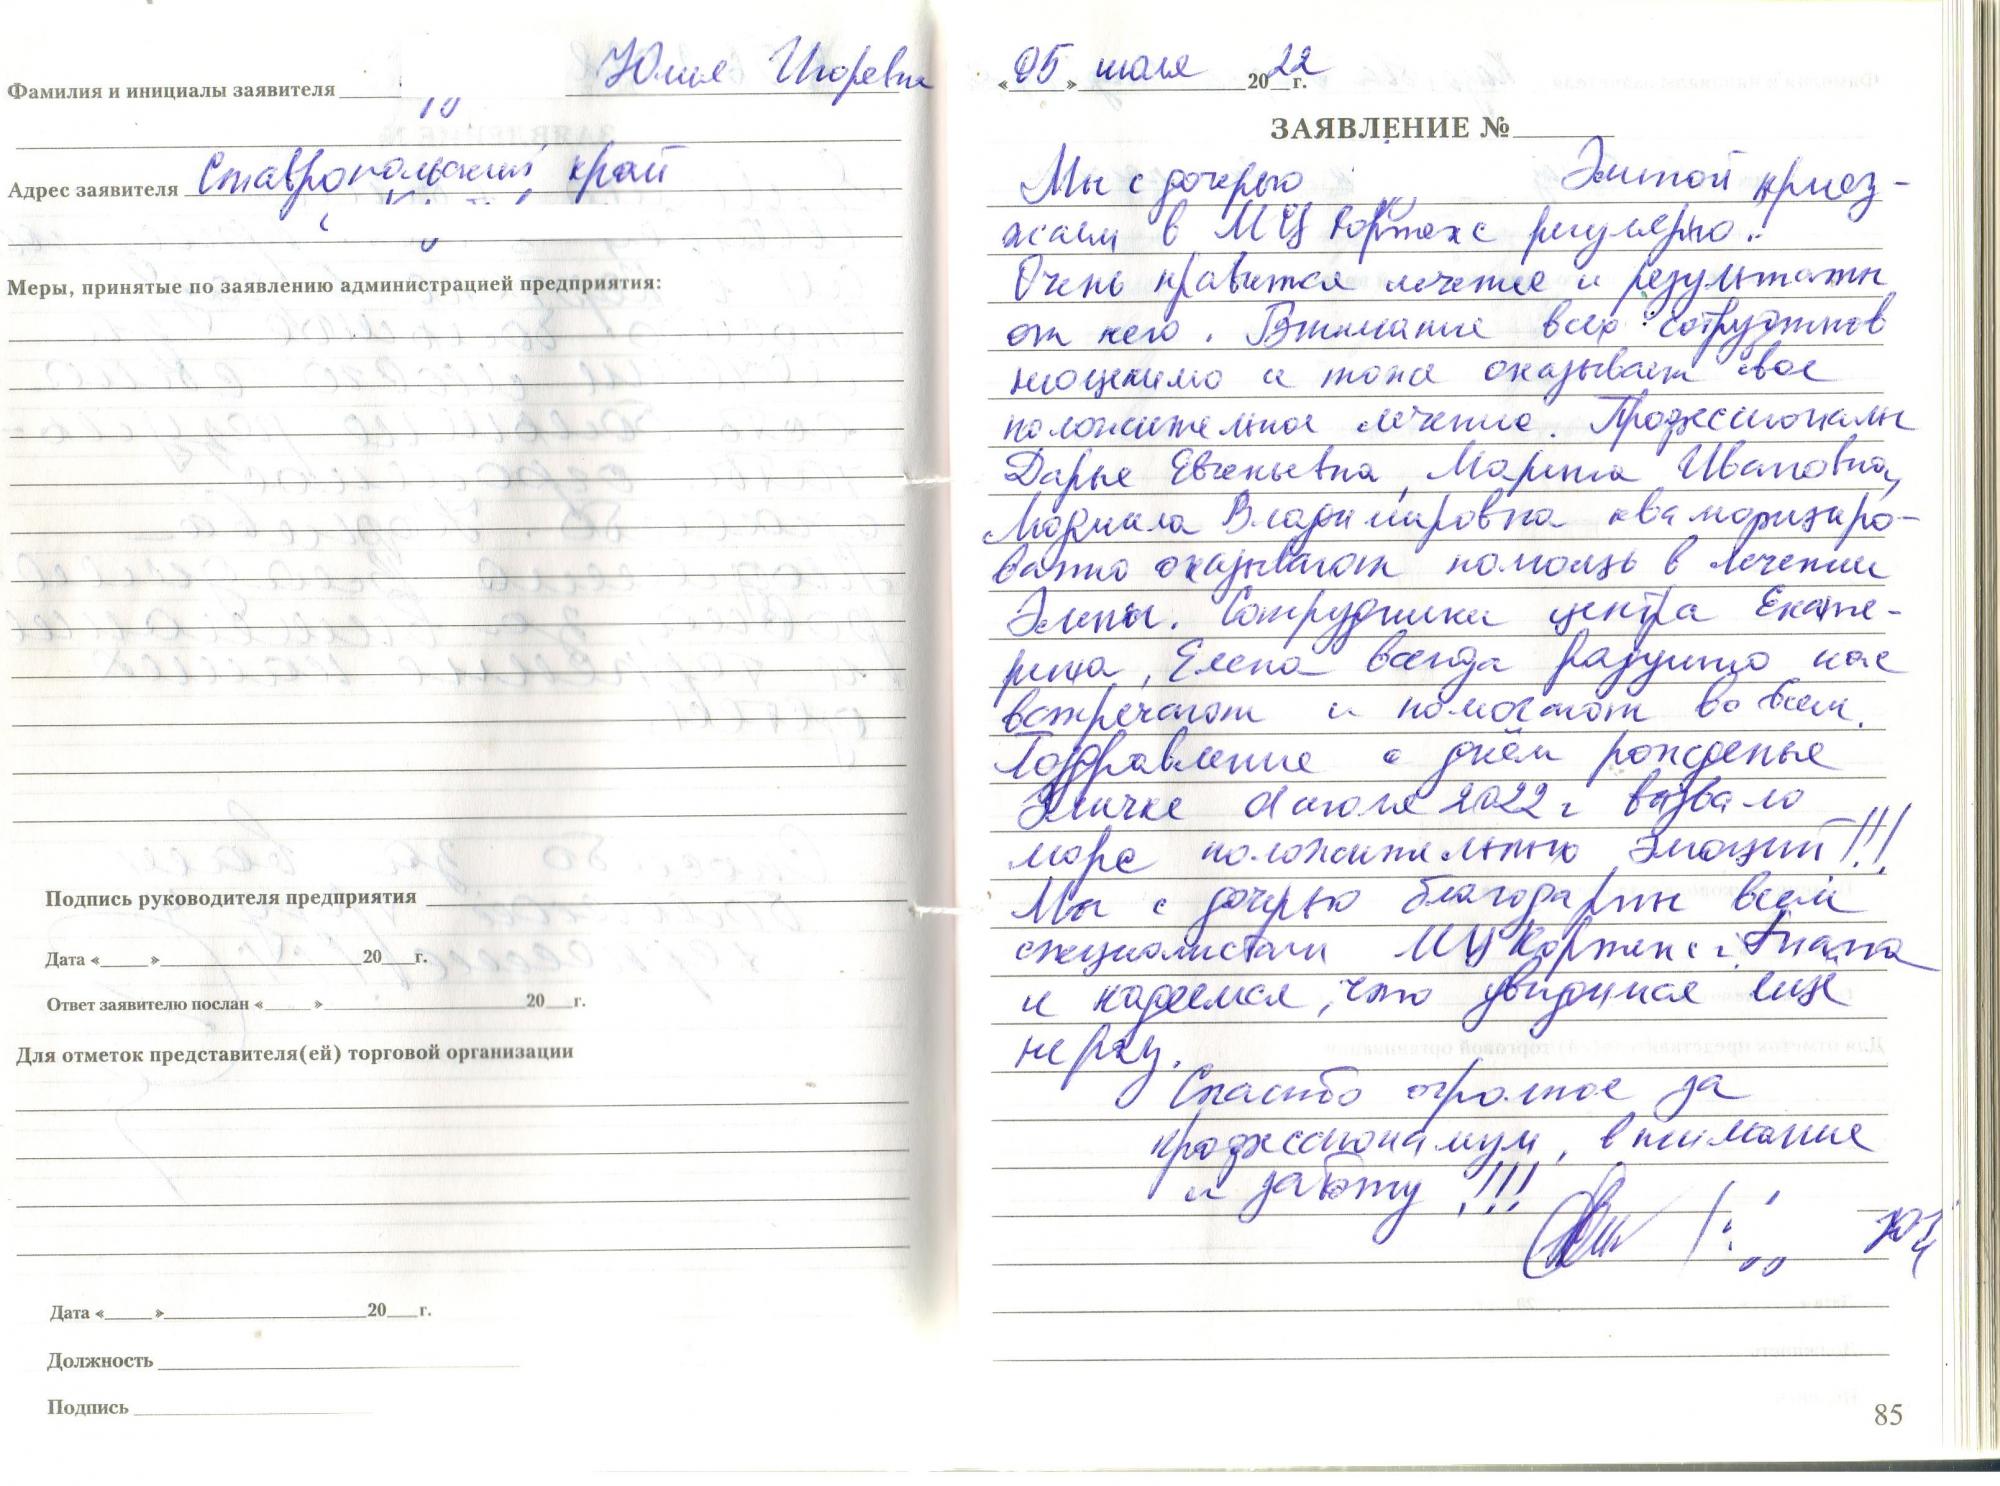 Фамилия и инициалы заявителя Юлия Игоревна
Адрес заявителя Ставропольский край
Меры, принятые по заявлению администрацией предприятия:
Подпись руководителя предприятия
Дата «____»____20__г.
Ответ заявителю послан «____»____20__г.
Для отметок представителя(ей) торговой организации
Дата «____»____20__г.
Должность
Подпись
«05» июля 2022г.
ЗАЯВЛЕНИЕ №
Мы с дочерью Элитой приез-
жаем в МЦ Кортекс регулярно.
Очень нравится лечение и результаты
от него. Внимание всех сотрудников
неоценимо и тоже оказывает свое
положительное лечение. Профессионалы
Дарья Евгеньевна, Марина Ивановна,
Людмила Владимировна квалифициро-
ванно оказывают помощь в лечении
Элиты. Сотрудники центра Екате-
рина, Елена всегда радушно нас
встречают и помогают во всем.
Поздравление с днём рожденья
Элички июля 2022 г вызвало
море положительных эмоций!!!
Мы с дочерью благодарны всем
специалистам МЦ Кортекс г. Анапа
и надеемся, что увидимся ещё
не раз.
Спасибо огромное за
профессионализм, внимание
и заботу!!!
85